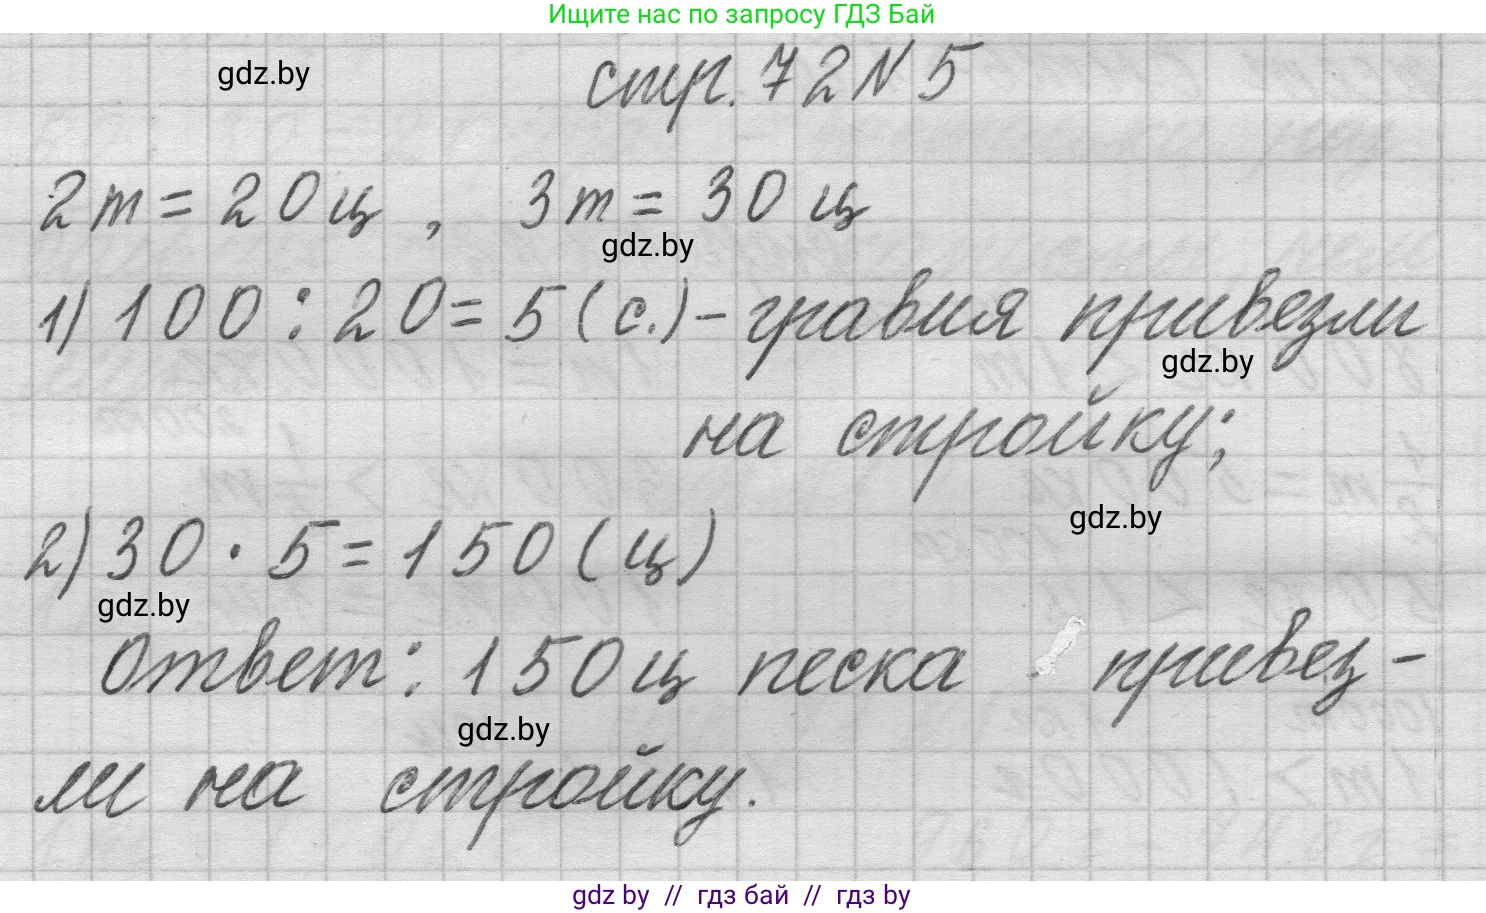 Ищите нас по запросу ГДЗ Бай
gdz.by
стр. 72 N 5
2т = 20ц, 3т = 30 ц
gdz.by
1) 100 : 20 = 5 (с.) - гравия привезли
gdz.by
на стройку;
gdz.by
2) 30 · 5 = 150 (ц)
gdz.by
Ответ: 150ц песка привез-
gdz.by
ли на стройку.
gdz by // гдз бай // гдз by